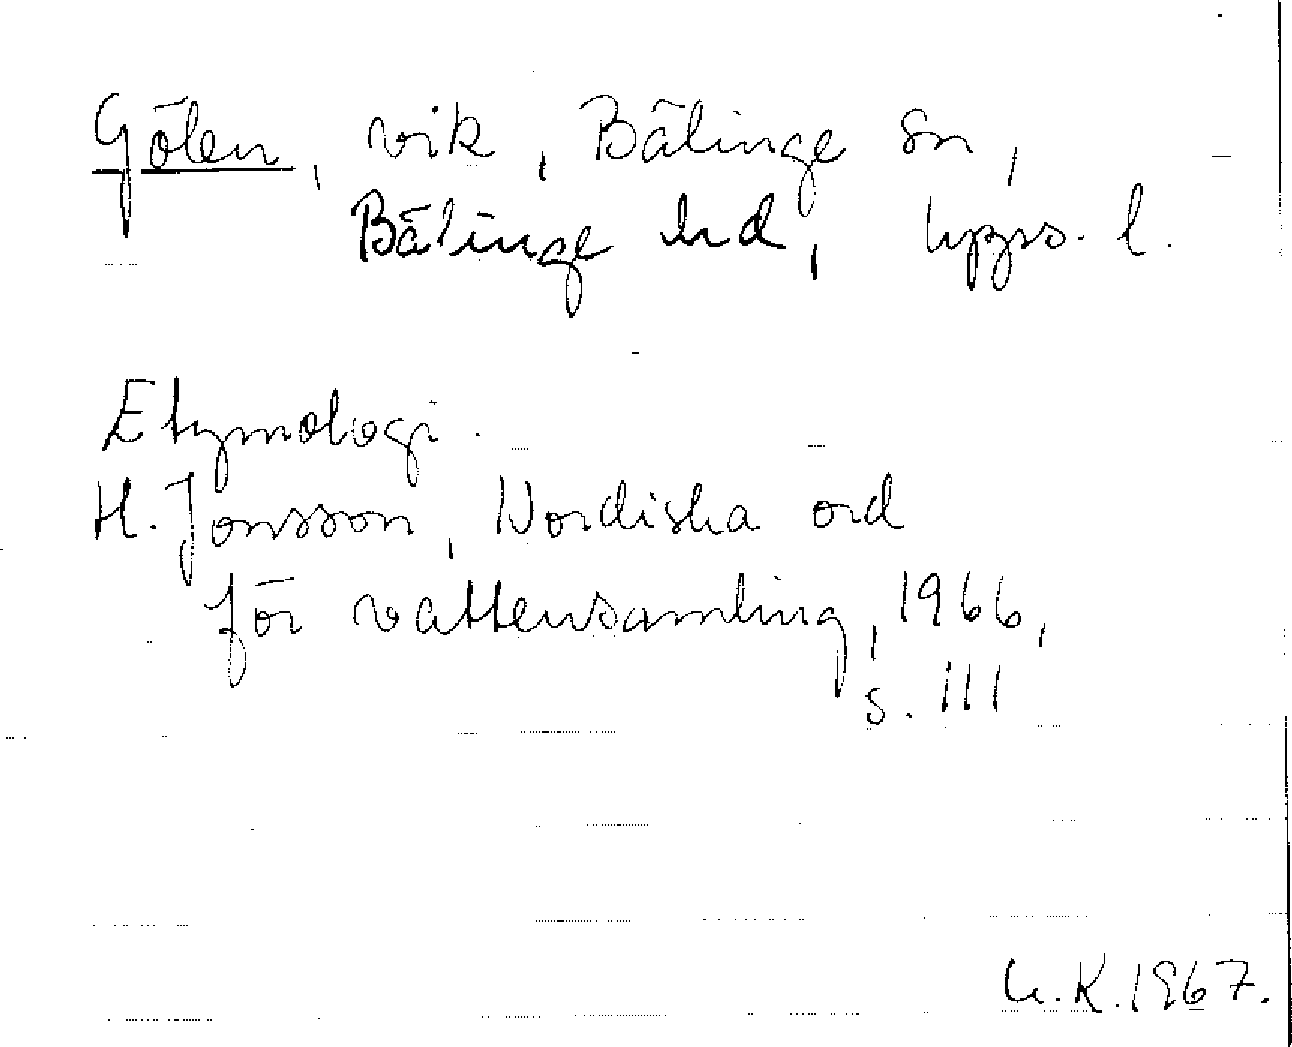 Gölen, vik, Bälinge sn,
Bälinge hd, Upps. l.
Etymologi.
H. Jonsson, Nordiska ord
för vattensamling, 1966,
s. 111
U.K. 1967.